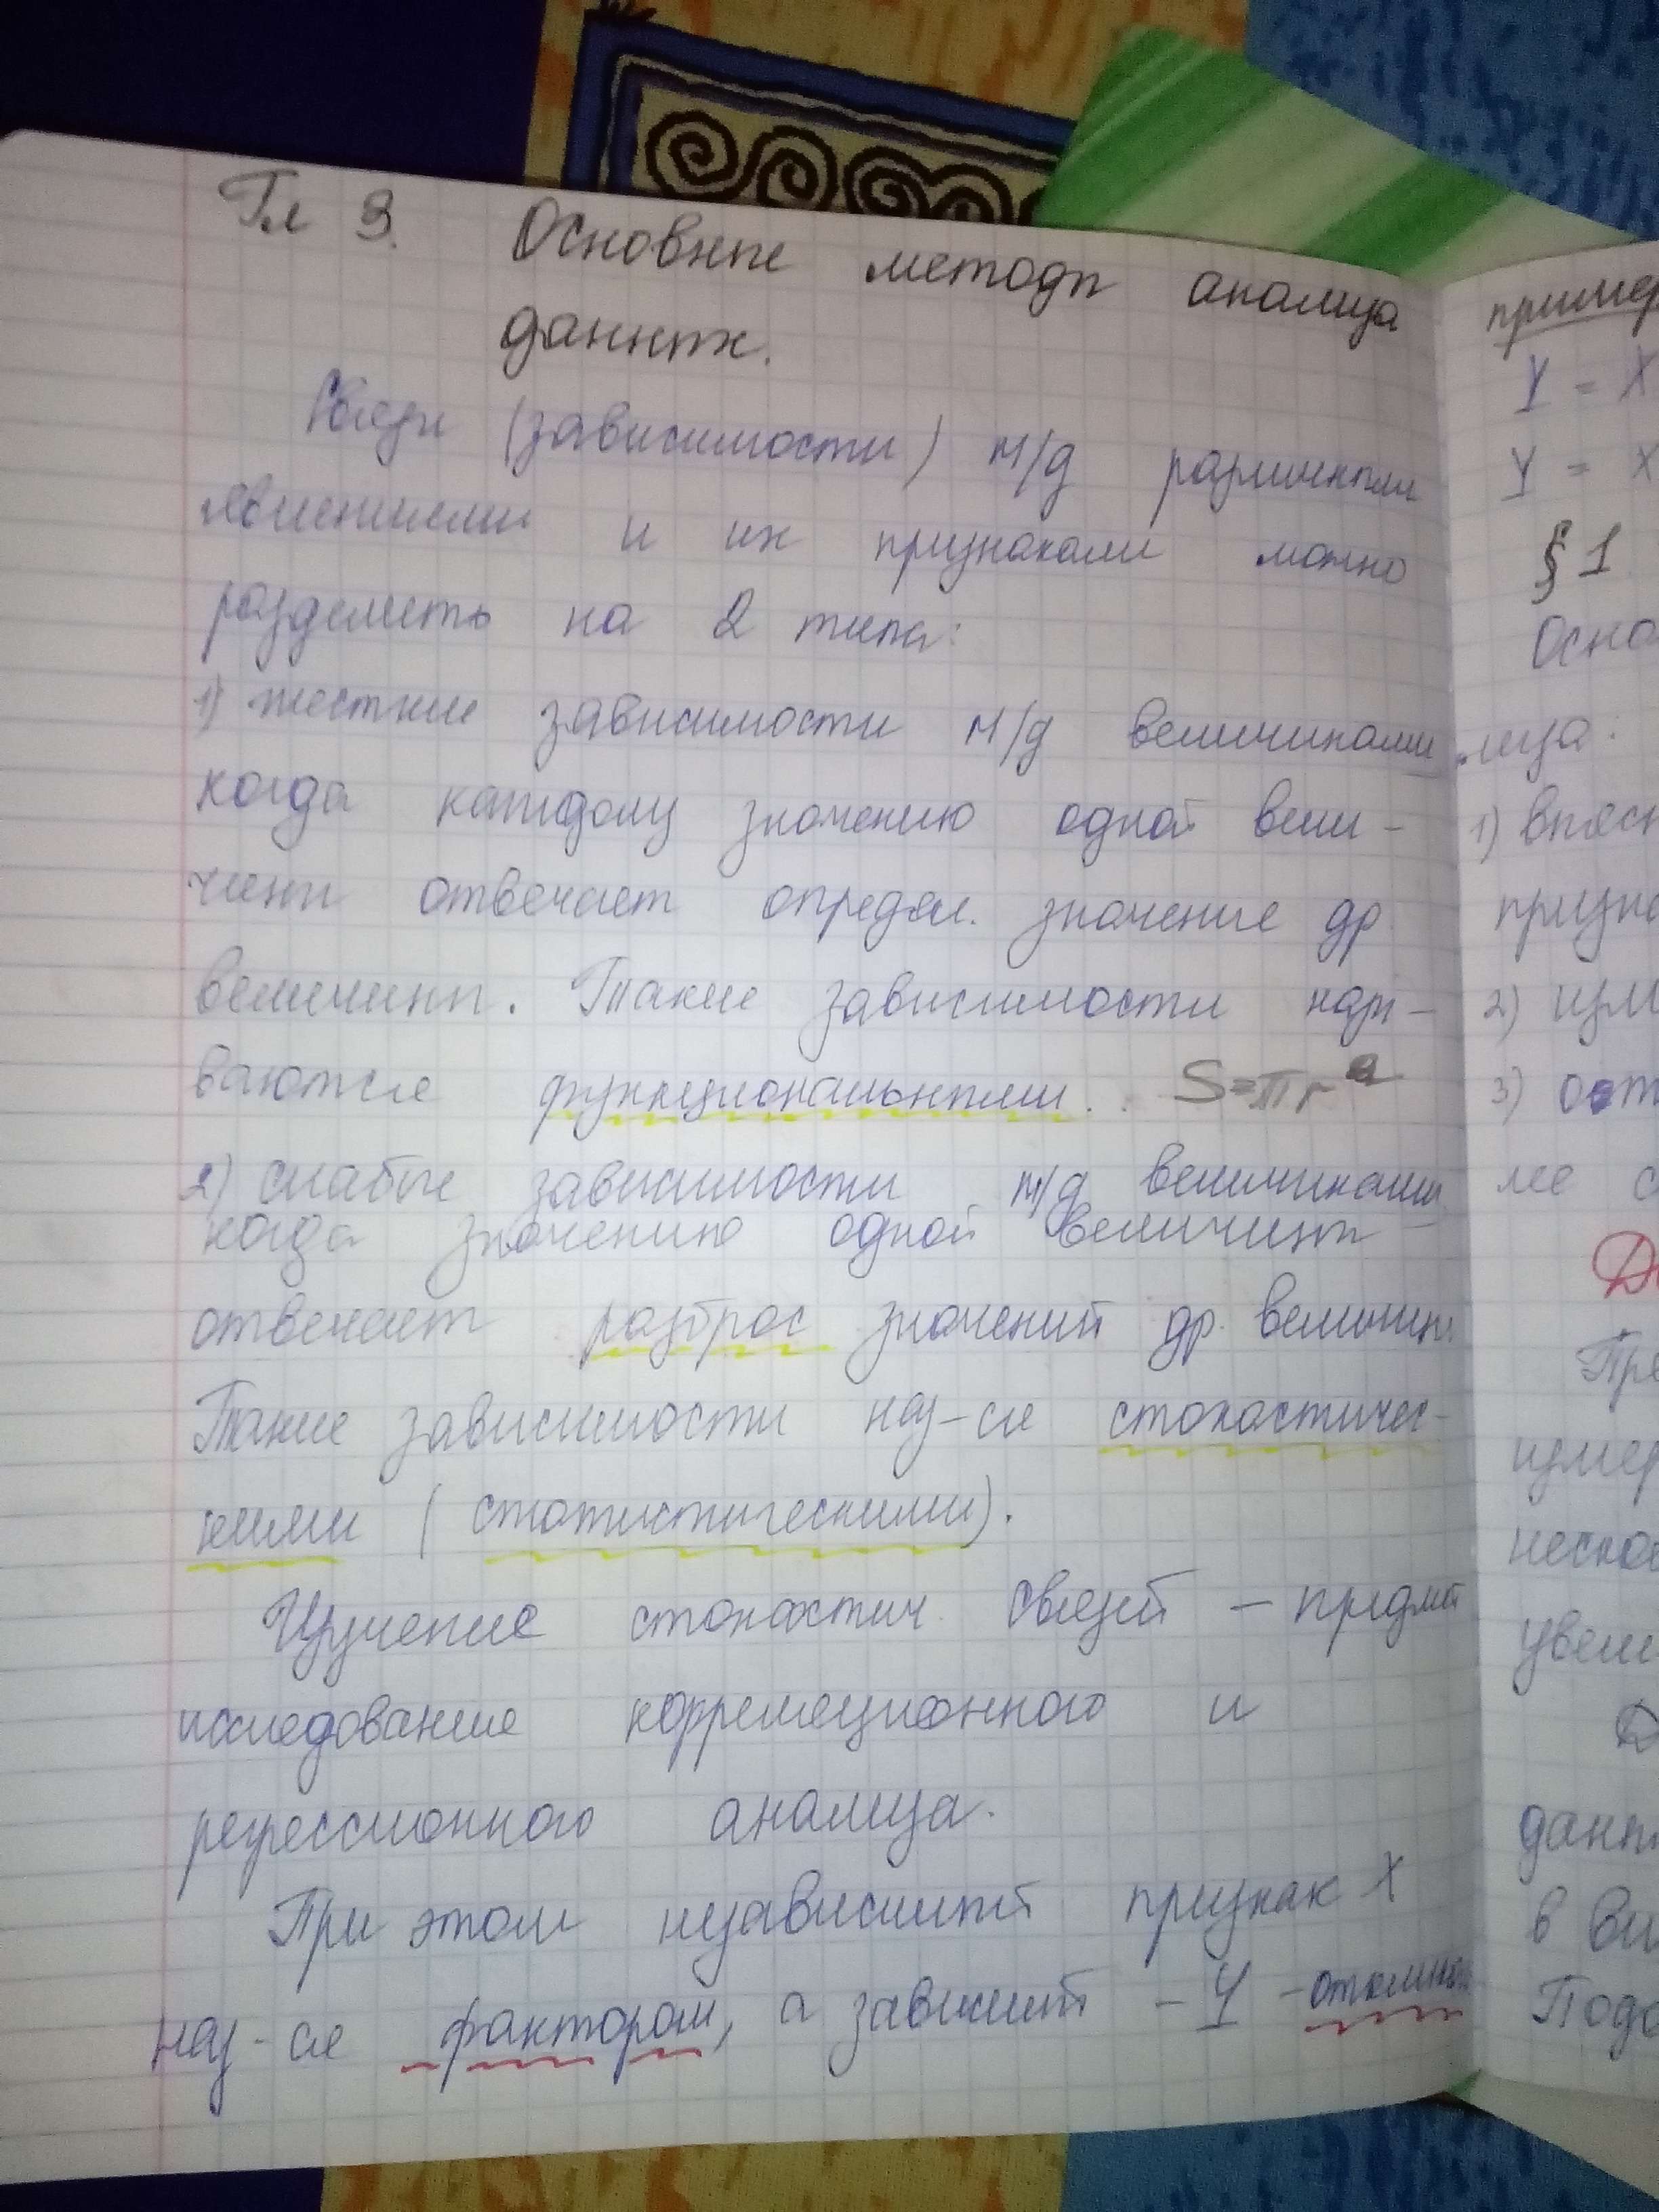 Гл 3. Основные методы анализа
данных.
Связи (зависимости) м/д различными
явлениями и их признаками можно
разделить на 2 типа:
1) жесткие зависимости м/д величинами,
когда каждому значению одной вели-
чины отвечает определ. значение др.
величины. Такие зависимости назы-
ваются функциональными. S=πr²
2) слабые зависимости м/д величинами,
когда значению одной величины
отвечает разброс значений др. величины.
Такие зависимости наз-ся стохастичес-
кими (статистическими).
Изучение стохастич. связей – предмет
исследование корреляционного и
регрессионного анализа.
При этом независимый признак X
наз-ся фактором, а зависимый – Y –
пример
Y = X
Y = X
§1
Осно
лиза:
1) выясн
призна
2) изм
3) ост
ле с
Пре
измер
неско
увели
данн
в ви
Подо